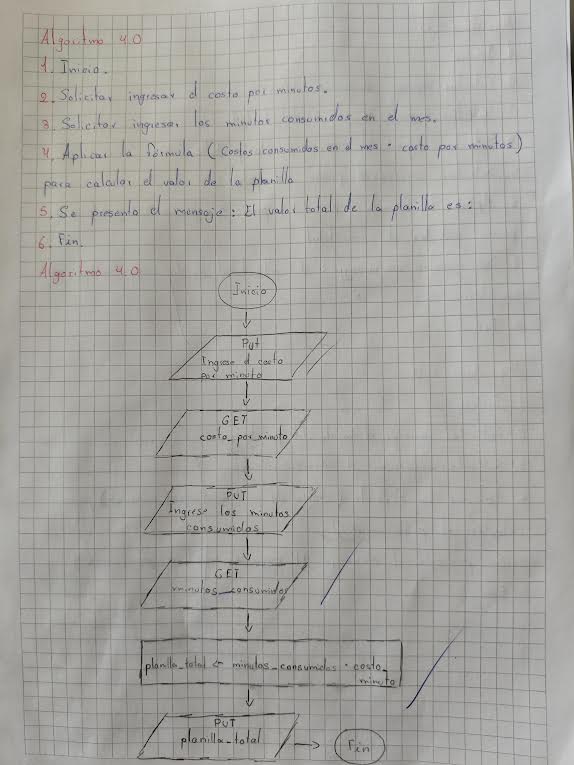 Algoritmo 4.0
1. Inicio.
2. Solicitar ingresar el costo por minutos.
3. Solicitar ingresar los minutos consumidos en el mes.
4. Aplicar la formula (Costos consumidos en el mes · costo por minutos)
para calcular el valor de la planilla
5. Se presenta el mensaje: El valor total de la planilla es:
6. Fin.
Algoritmo 4.0
Inicio
PUT
Ingrese el costo
por minuto
GET
costo_por_minuto
PUT
Ingrese los minutos
consumidos
GET
minutos_consumidos
planilla_total ← minutos_consumidos · costo_
minuto
PUT
planilla_total
Fin